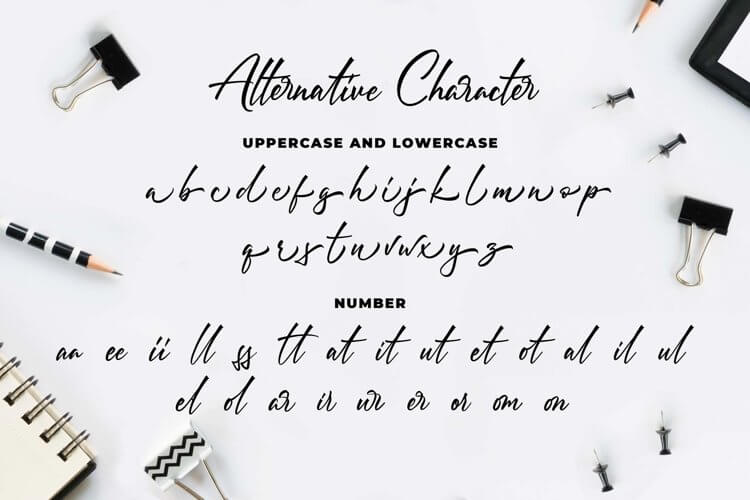 Alternative Character
UPPERCASE AND LOWERCASE
a b c d e f g h i j k l m n o p
q r s t u v w x y z
NUMBER
aa ee ii ll ss tt at it ut et ot al il ul
el ol ar ir ur er or om on